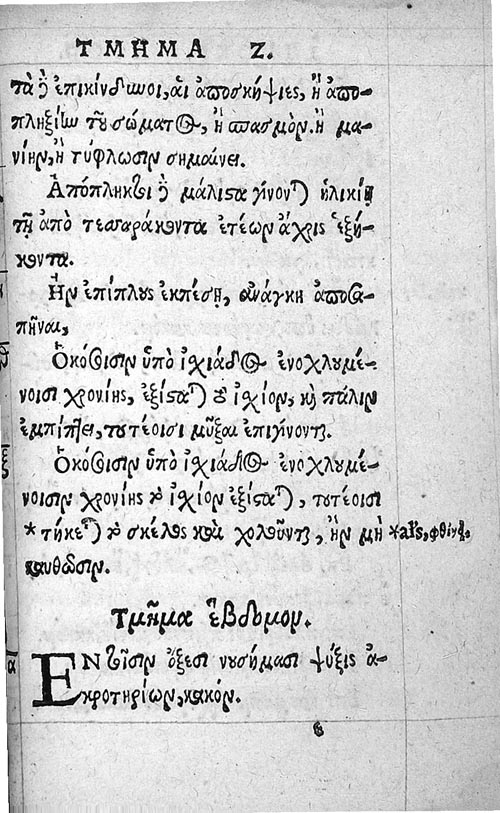 ΤΜΗΜΑ Ζ.
τὰ δὲ ἐπικίνδυνοι, αἱ ἀποσκήψιες, ἢ ἀπο-
πληξίην τοῦ σώματος, ἢ σπασμὸν. ἢ μα-
νίην, ἢ τύφλωσιν σημαίνει.
Ἀπόπληκτοι δὲ μάλιστα γίνονται ἡλικίῃ
τῇ ἀπὸ τεσσαράκοντα ἐτέων ἄχρις ἑξή-
κοντα.
Ἢν ἐπίπλους ἐκπέσῃ, ἀνάγκη ἀποσα-
πῆναι,
Ὁκόσοισιν ὑπὸ ἰσχιάδος ἐνοχλουμέ-
νοισι χρονίης, ἐξίσταται τὸ ἰσχίον, καὶ πάλιν
ἐμπίπτει, τουτέοισι μύξαι ἐπιγίνονται.
Ὁκόσοισιν ὑπὸ ἰσχιάδος ἐνοχλουμέ-
νοισιν χρονίης τὸ ἰσχίον ἐξίσταται, τουτέοισι
* τήκεται τὸ σκέλος καὶ χολοῦνται, ἢν μὴ
καυθῶσιν.
Τμῆμα ἕβδομον.
ΕΝ τοῖσιν ὀξέσι νουσήμασι ψύξις ἀ-
κροτηρίων, κακόν.